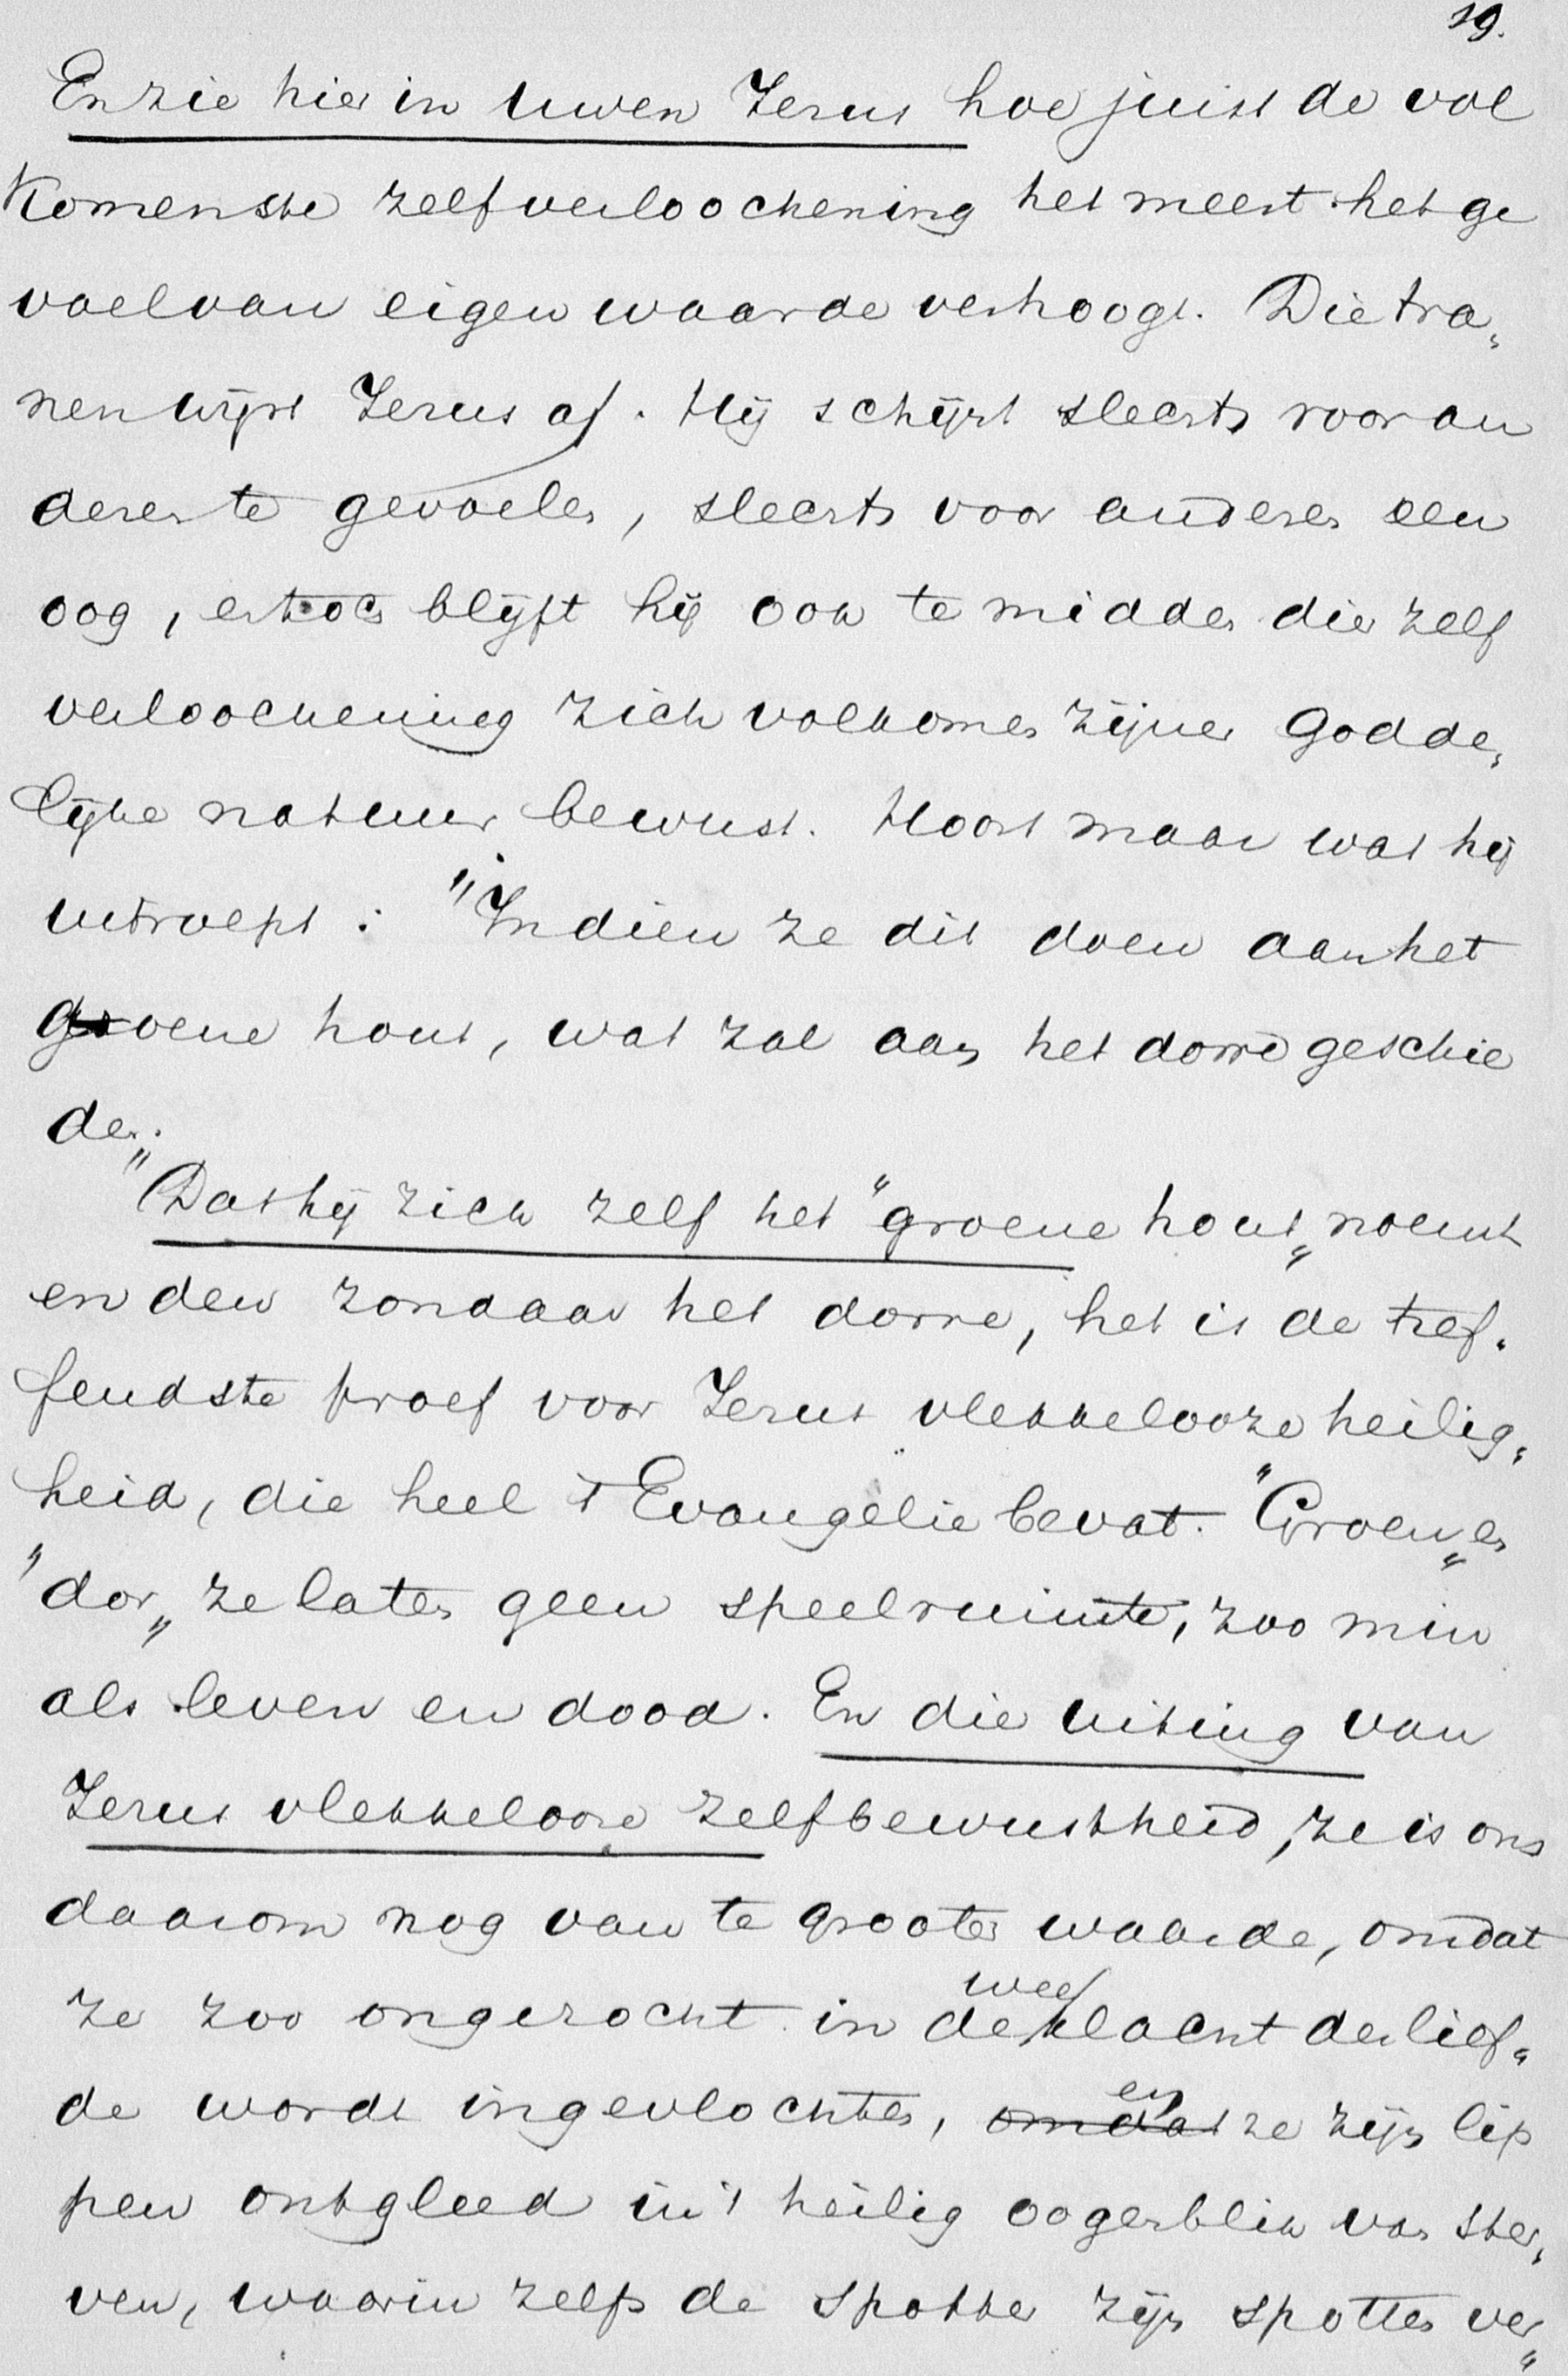 19.
En zie hier in uwen Jezus hoe juist de vol
komenste zelfverloochening het meest het ge
voel van eigenwaarde verhoogt. Die tra„
nen wijst Jezus af. Hij schijnt slechts voor an
deren te gevoelen, slechts voor anderen een
oog, en toch blijft hij ook te midden dier zelf
verloochening zich volkomen zijner Godde„
lijke natuur bewust. Hoort maar wat hij
uitroept: "Indien ze dit doen aan het
groene hout, wat zal aan het dorre geschie
den."
Dat hij zich zelf het "groene hout„ noemt
en den zondaar het dorre, het is de tref„
fendste proef voor Jezus vlekkelooze heilig„
heid, die heel 't Evangelie bevat. "Groen„ en
"dor„ ze laten geen speelruimte, zoo min
als leven en dood. En die uiting van
Jezus vlekkelooze zelfbewustheid, ze is ons
daarom nog van te grooter waarde, omdat
ze zoo ongezocht in de weeklacht der lief„
de wordt ingevlochten, omdat en ze zijn lip
pen ontgleed in 't heilig oogenblik van ster„
ven, waarin zelfs de spotter zijn spotten ver„